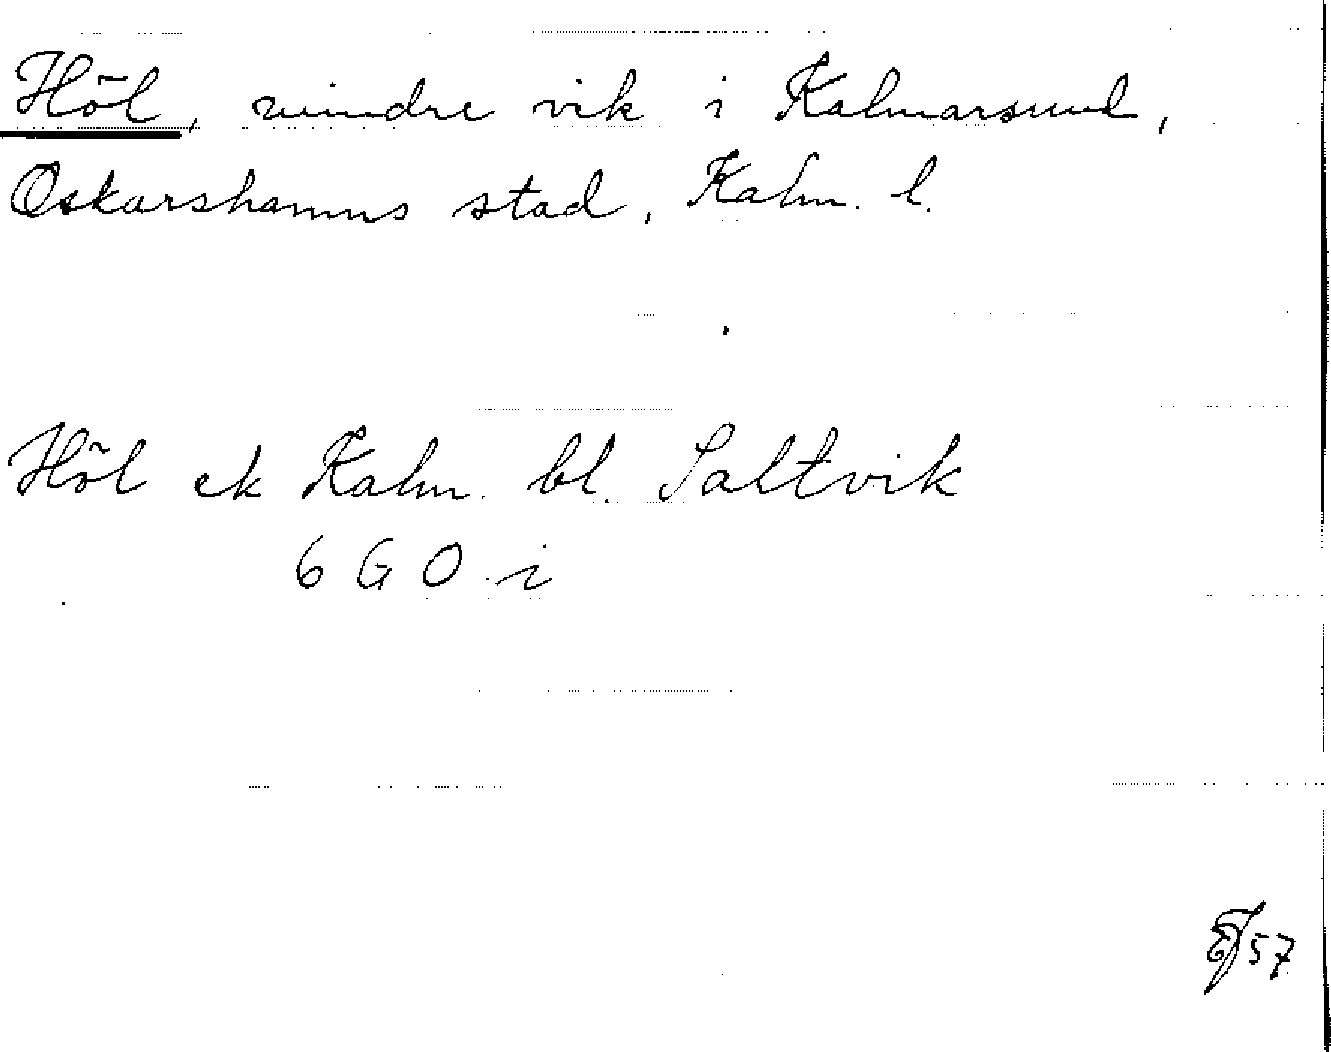 Höl, mindre vik i Kalmarsund,
Oskarshamns stad, Kalm. l.
Höl ek Kalm. bl. Saltvik
6 G O i
57